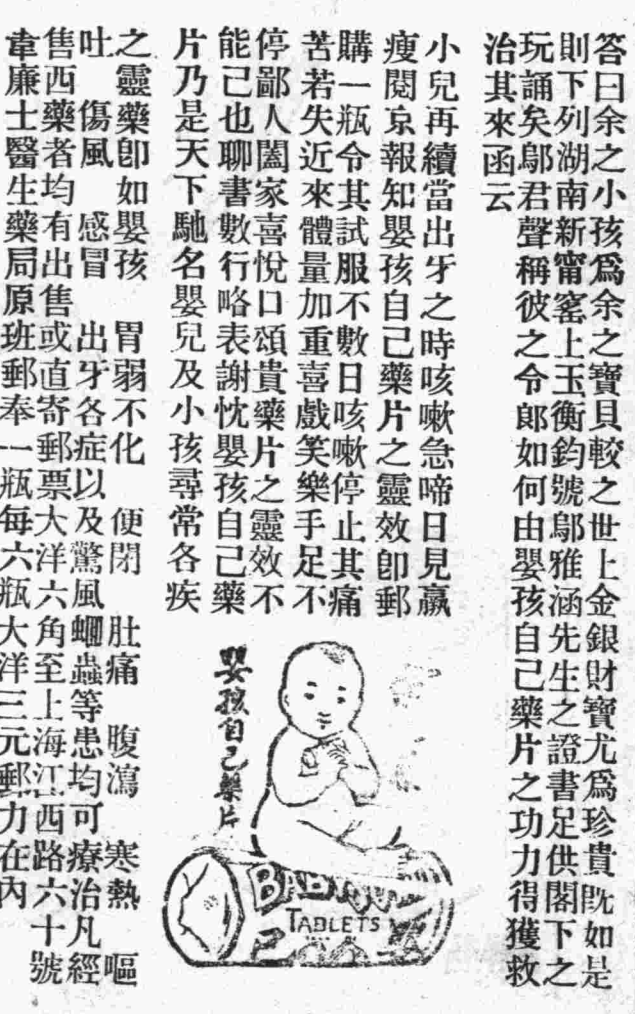 答曰余之小孩爲余之寶貝較之世上金銀財寶尤爲珍貴旣如是
則下列湖南新甯窰上玉衡鈞號鄔雅涵先生之證書足供閣下之
玩誦矣鄔君聲稱彼之令郞如何由嬰孩自己藥片之功力得獲救
治其來函云
小兒再續當出牙之時咳嗽急啼日見羸
瘦閱京報知嬰孩自己藥片之靈效卽郵
購一瓶令其試服不數日咳嗽停止其痛
苦若失近來體量加重喜戲笑樂手足不
停鄙人闔家喜悅口頌貴藥片之靈效不
能己也聊書數行略表謝忱嬰孩自己藥
片乃是天下馳名嬰兒及小孩尋常各疾
之靈藥卽如嬰孩 胃弱不化 便閉 肚痛 腹瀉 寒熱 嘔
吐 傷風 感冒 出牙各症以及驚風蛔蟲等患均可療治凡經
售西藥者均有出售或直寄郵票大洋六角至上海江西路六十號
韋廉士醫生藥局原班郵奉一瓶每六瓶大洋三元郵力在內
嬰孩自己藥片
BABY
TABLETS